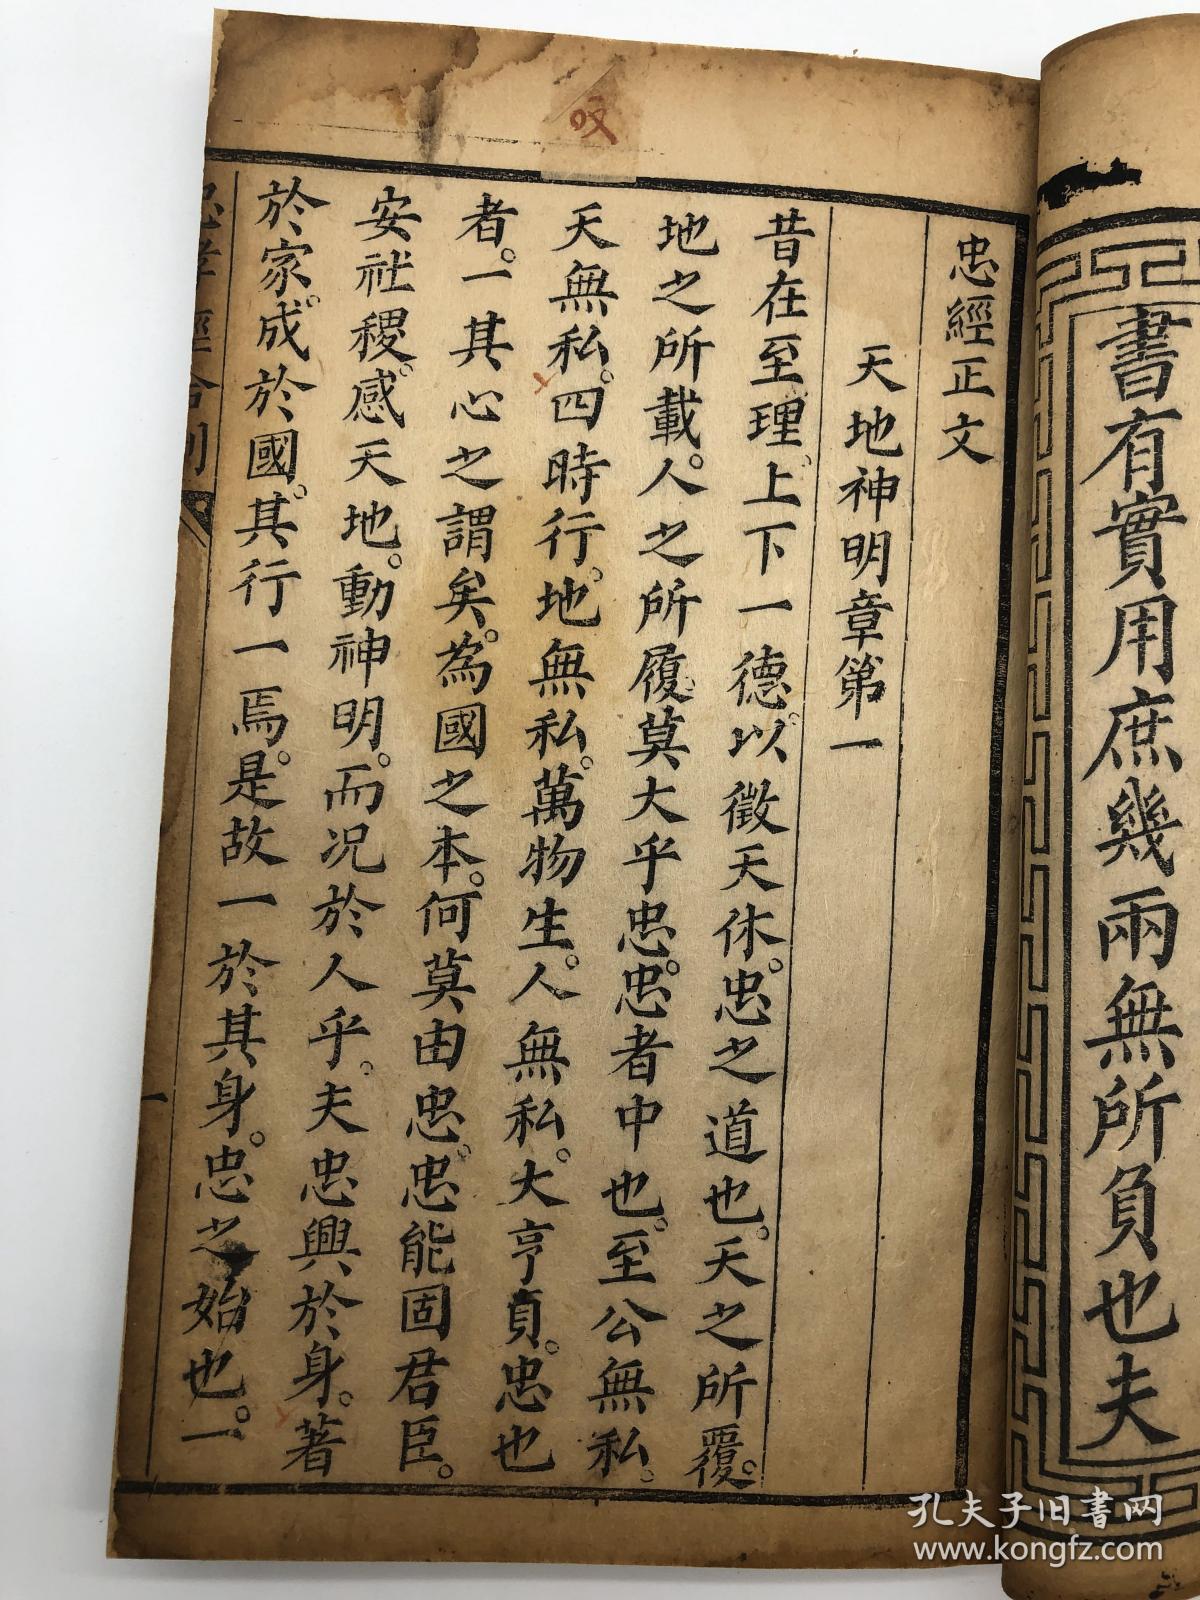 書有實用庶幾兩無所負也夫
忠經正文
天地神明章第一
昔在至理。上下一德。以徵天休。忠之道也。天之所覆。
地之所載。人之所履。莫大乎忠。忠者中也。至公無私。
天無私。四時行。地無私。萬物生。人無私。大亨貞。忠也
者。一其心之謂矣。為國之本。何莫由忠。忠能固君臣。
安社稷。感天地。動神明。而况於人乎。夫忠興於身。著
於家。成於國。其行一焉。是故一於其身。忠之始也。一
忠孝經合刻
一
孔夫子旧书网
www.kongfz.com